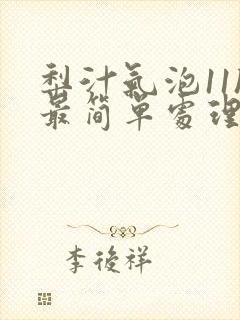 梨汁氣泡11P
最简單處理
李後祥